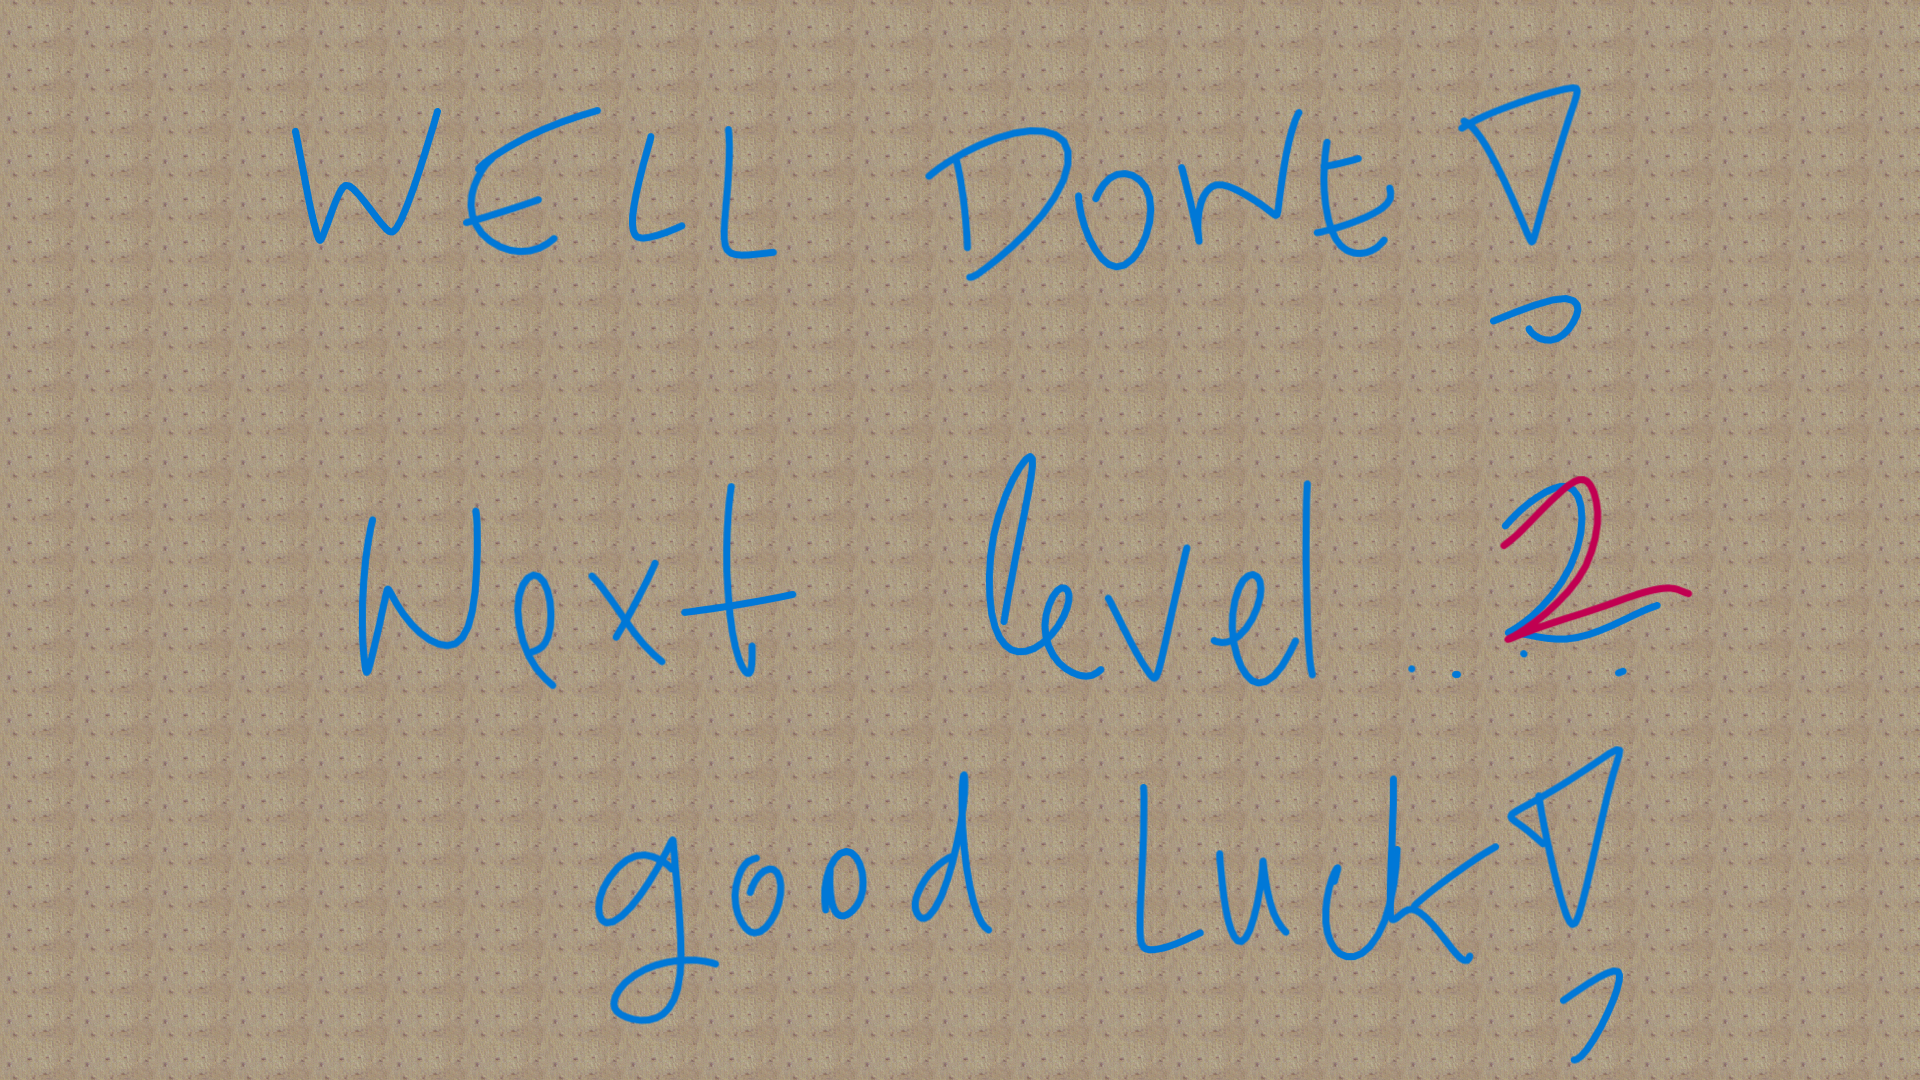 WELL DONE!
Next level .. 2
good Luck!